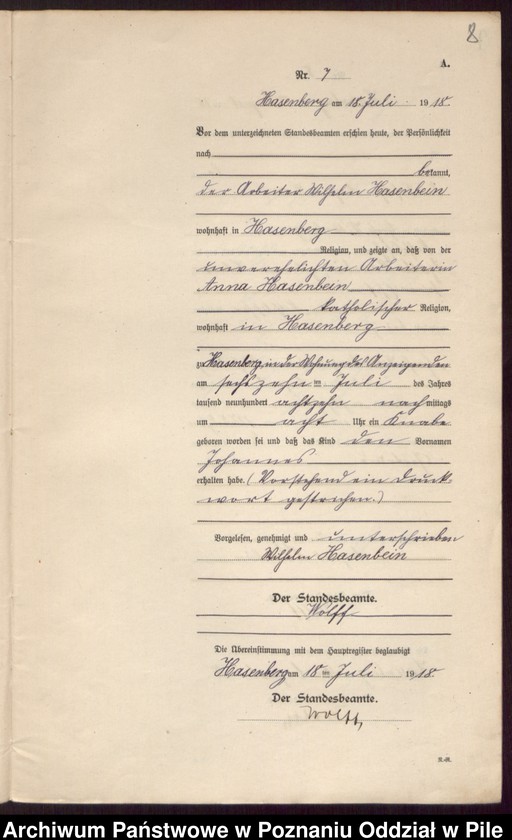 8
A.
Nr. 7
Hasenberg am 18. Juli 1918.
Vor dem unterzeichneten Standesbeamten erschien heute, der Persönlichkeit
nach
bekannt,
der Arbeiter Wilhelm Hasenbein
wohnhaft in Hasenberg
Religion, und zeigte an, daß von der
unverehelichten Arbeiterin
Anna Hasenbein
katholischer Religion,
wohnhaft in Hasenberg
zu Hasenberg, in der Wohnung des Anzeigenden
am sechszehn ten Juli des Jahres
tausend neunhundert achtzehn nachmittags
um acht Uhr ein Knabe
geboren worden sei und daß das Kind den Vornamen
Johannes
erhalten habe. (Vorstehend ein Druck-
wort gestrichen.)
Vorgelesen, genehmigt und unterschrieben
Wilhelm Hasenbein
Der Standesbeamte.
Wolff
Die Übereinstimmung mit dem Hauptregister beglaubigt
Hasenberg am 18 ten Juli 1918.
Der Standesbeamte.
Wolff
Archiwum Państwowe w Poznaniu Oddział w Pile